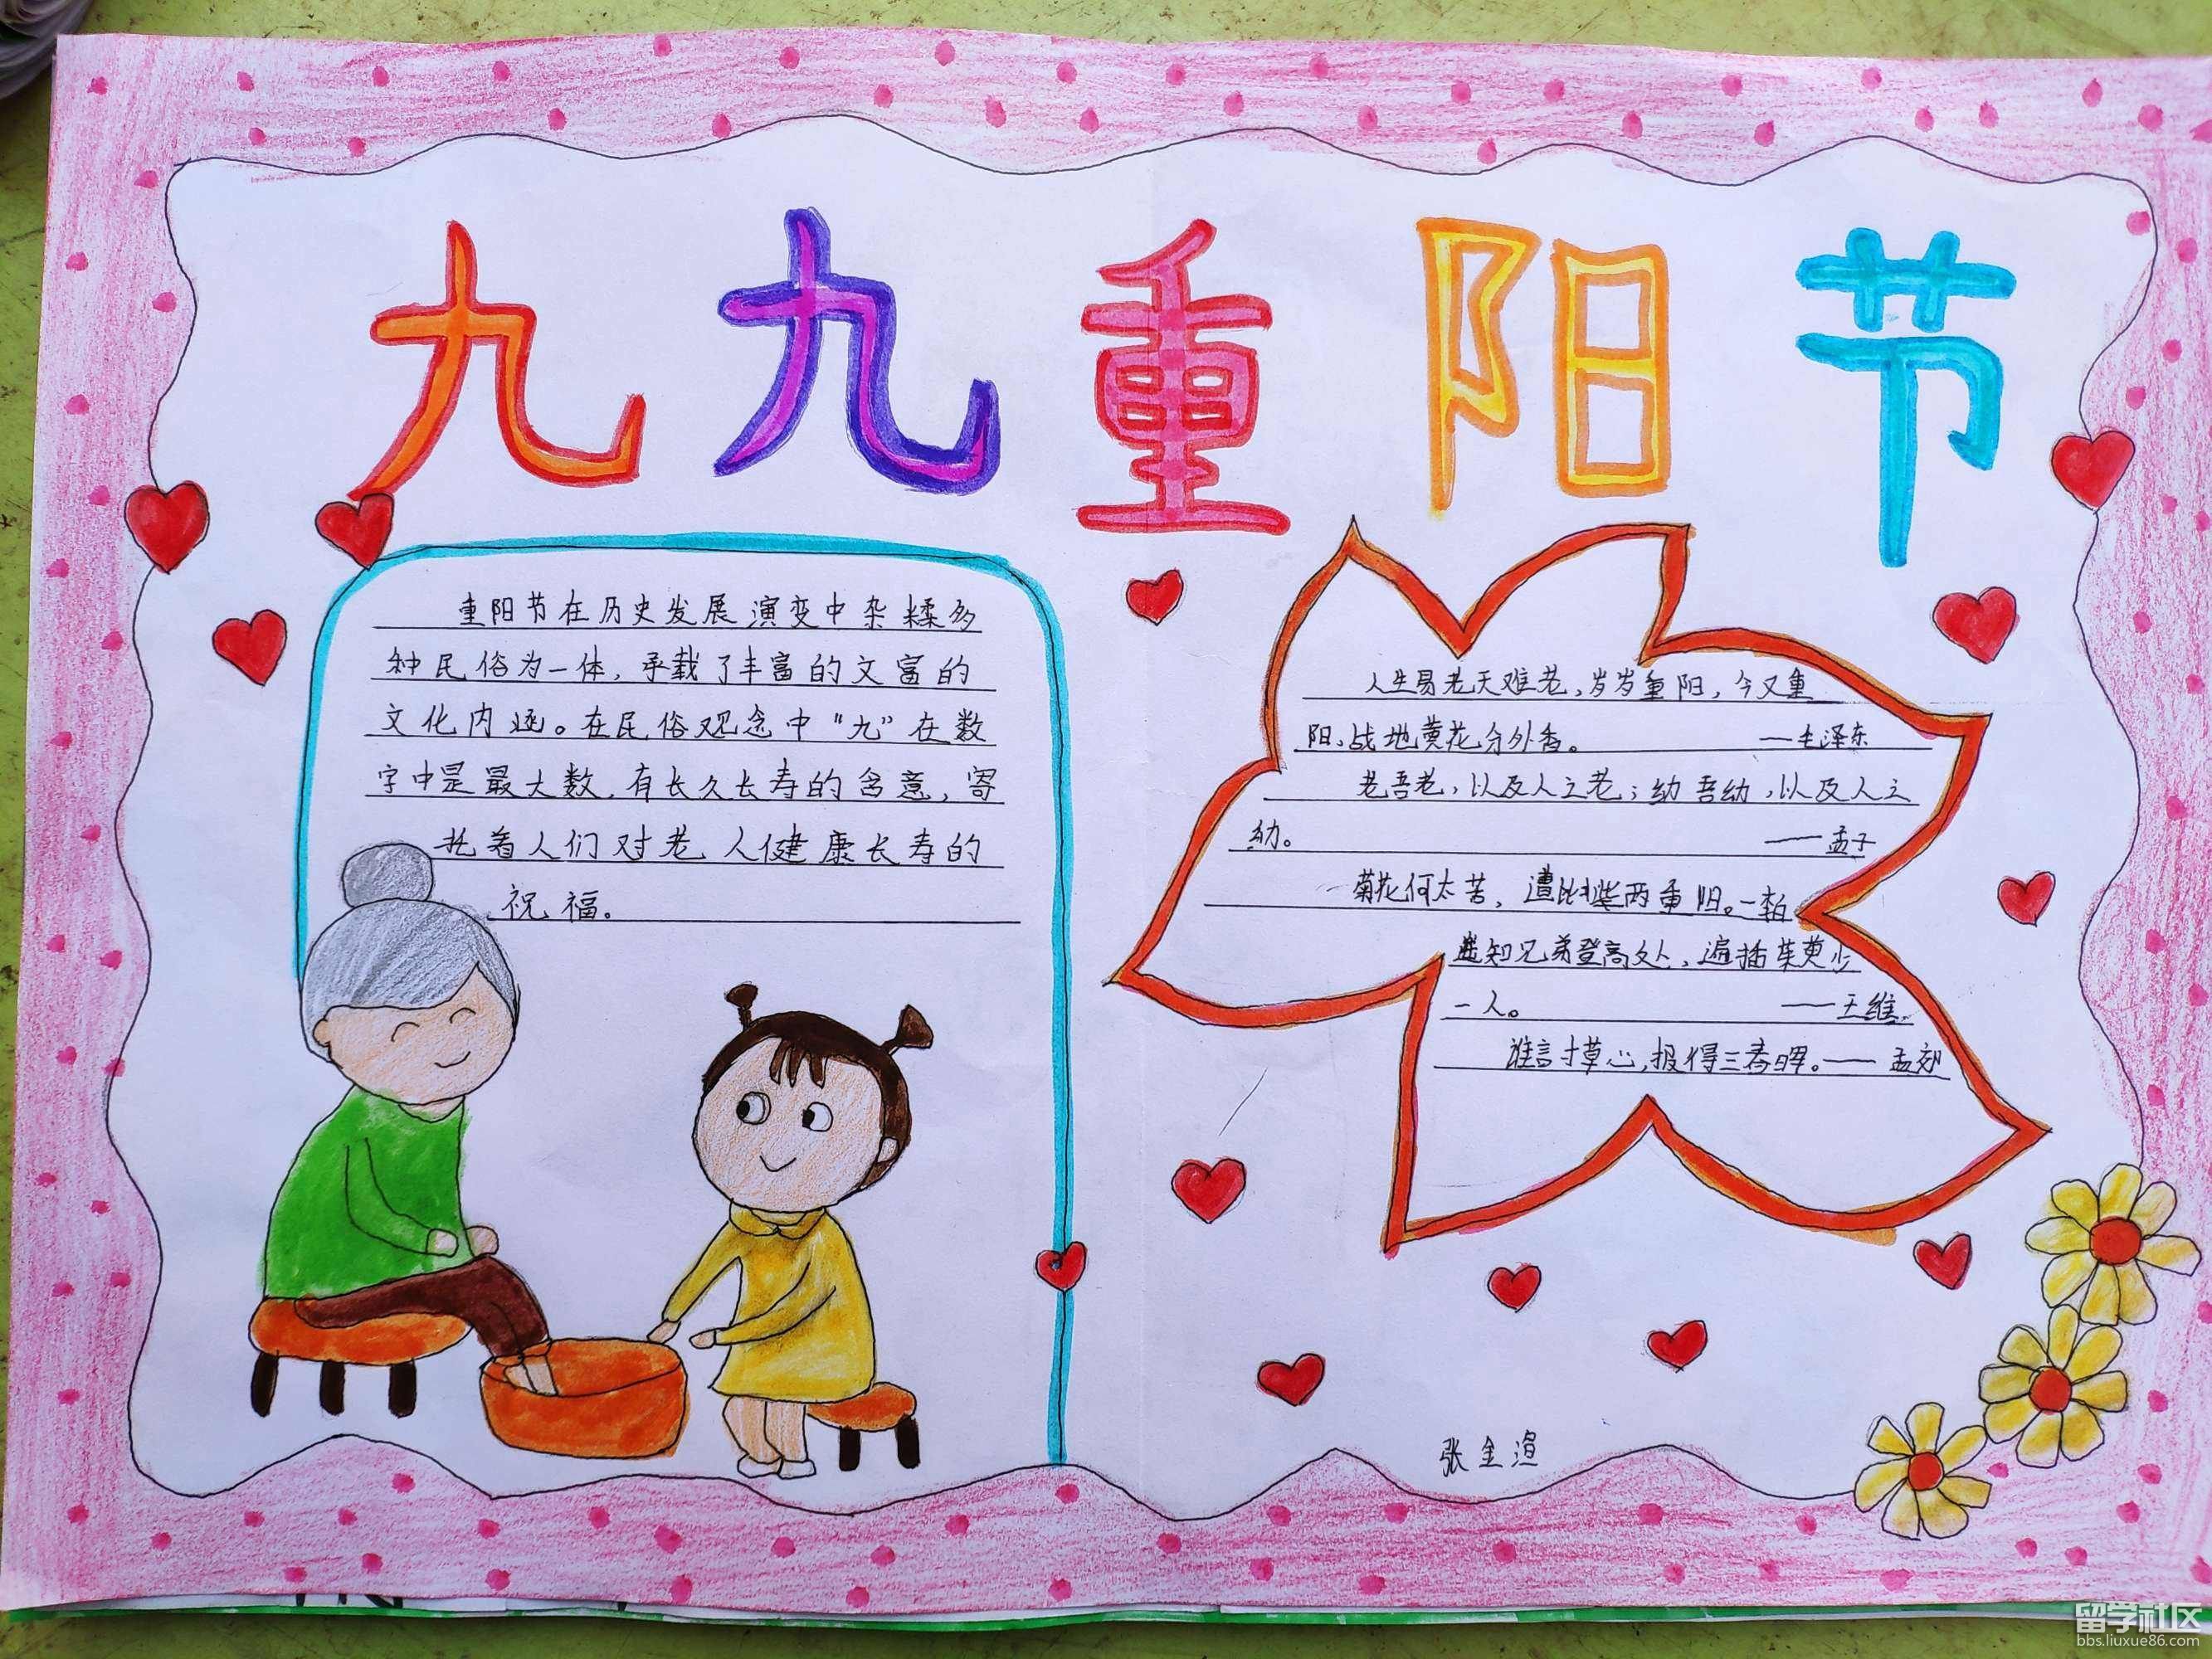 九九重阳节
重阳节在历史发展演变中杂糅多
种民俗为一体，承载了丰富的文富的
文化内涵。在民俗观念中“九”在数
字中是最大数，有长久长寿的含意，寄
托着人们对老人健康长寿的
祝福。
人生易老天难老，岁岁重阳，今又重
阳，战地黄花分外香。 ——毛泽东
老吾老，以及人之老；幼吾幼，以及人之
幼。 ——孟子
菊花何太苦，遭此两重阳。—李白
遥知兄弟登高处，遍插茱萸少
一人。 ——王维
谁言寸草心，报得三春晖。——孟郊
张金
留学社区
bbs.liuxue86.com